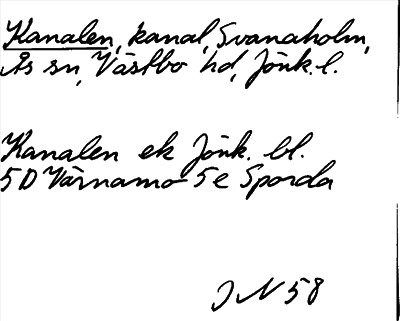 Kanalen, kanal, Svanaholm,
Ås sn, Västbo hd, Jönk. l.
Kanalen ek Jönk. bl.
5D Värnamo 5e Sporda
J N 58